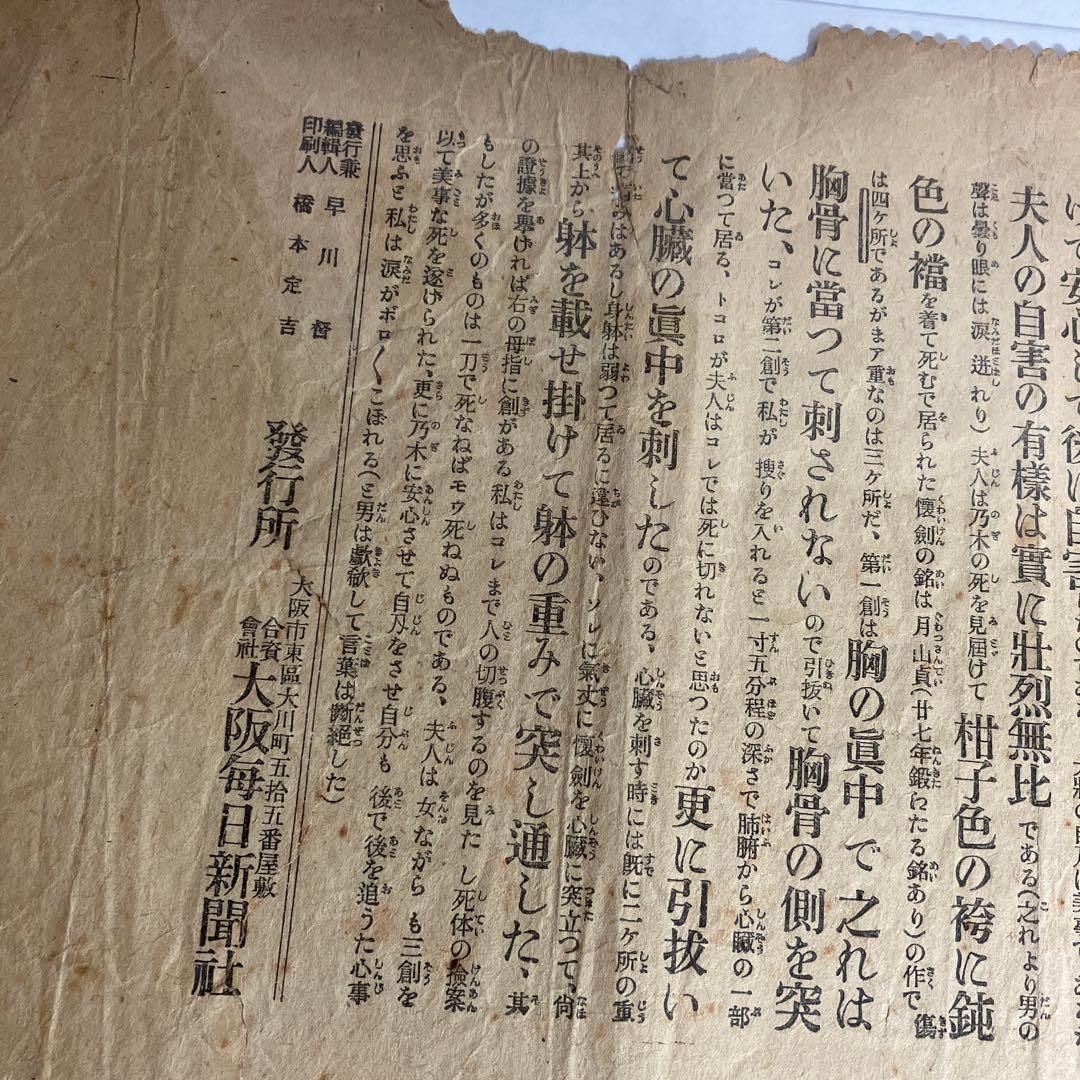 けて安心して後は自害
夫人の自害の有様は實に壯烈無比である(之れより男の
聲は曇り眼には涙迸れり)夫人は乃木の死を見届けて柑子色の袴に鈍
色の襠を着て死むで居られた懷劍の銘は月山貞(廿七年鍛わたる銘あり)の作で傷
は四ヶ所であるがまア重なのは三ヶ所だ、第一創は胸の眞中で之れは
胸骨に當つて刺されないので引拔いて胸骨の側を突
いた、コレが第二創で私が搜りを入れると一寸五分程の深さで肺腑から心臟の一部
に當つて居る、トコロが夫人はコレでは死に切れないと思つたのか更に引拔い
て心臟の眞中を刺したのである、心臟を刺す時には既に二ヶ所の重
みはあるし身躰は弱つて居るに違ひない、ソレに氣丈に懷劍を心臟に突立つて、尙
其上から躰を載せ掛けて躰の重みで突し通した、其
の證據を擧ければ右の母指に創がある私はコレまで人の切腹するのを見たし死体の撿案
もしたが多くのものは一刀で死なねばモウ死ねぬものである、夫人は女ながらも三創を
以て美事な死を遂げられた、更に乃木に安心させて自刄をさせ自分も後で後を追うた心事
を思ふと私は涙がボロ〱こほれる(と男は歔欷して言葉は斷絕した)
發行兼
編輯人 早川
印刷人 橋本定吉
發行所
大阪市東區大川町五拾五番屋敷
合資
會社 大阪每日新聞社